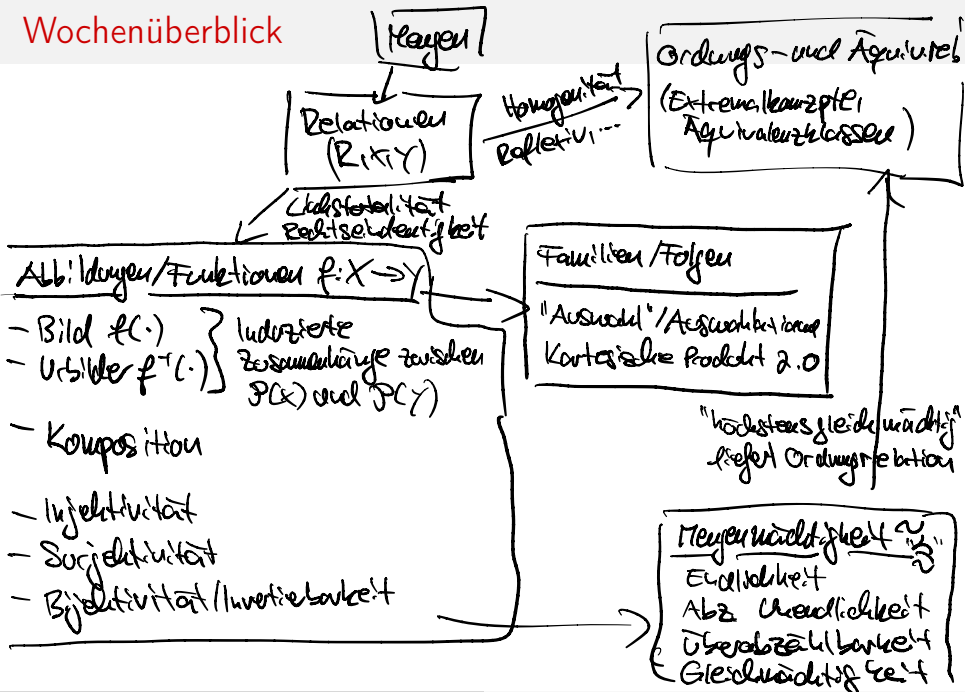 Wochenüberblick
Mengen
Relationen
(R,X,Y)
Homogenität
Reflexivi...
Ordnungs- und Äquivrel
(Extremalkonzepte,
Äquivalenzklassen)
Linkstotalität
Rechtseindeutigkeit
Abbildungen/Funktionen f: X → Y
- Bild f(·)
- Urbilder f⁻¹(·)
Induzierte
Zusammenhänge zwischen
P(X) und P(Y)
- Komposition
- Injektivität
- Surjektivität
- Bijektivität/Invertierbarkeit
Familien/Folgen
"Auswahl"/
Kartesische Produkt 2.0
"höchstens gleichmächtig"
liefert Ordnungsrelation
Mengenmächtigkeit
Endlichkeit
Abz Unendlichkeit
Überabzählbarkeit
Gleichmächtigkeit